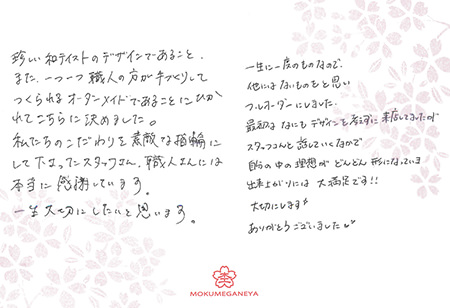 珍しい和テイストのデザインであること、
また、一つ一つ職人の方が手づくりして
つくられるオーダーメイドであることにひか
れてこちらに決めました。
私たちのこだわりを素敵な指輪に
して下さったスタッフさん、職人さんには
本当に感謝しています。
一生大切にしたいと思います。
一生に一度のものなので、
他にはないものをと思い
フルオーダーにしました。
最初はなにもデザインを考えずに来店しましたが
スタッフさんと話していくなかで
自分の中の理想がどんどん形になっていき
出来上がりには大満足です!!
大切にします
ありがとうございました
MOKUMEGANEYA